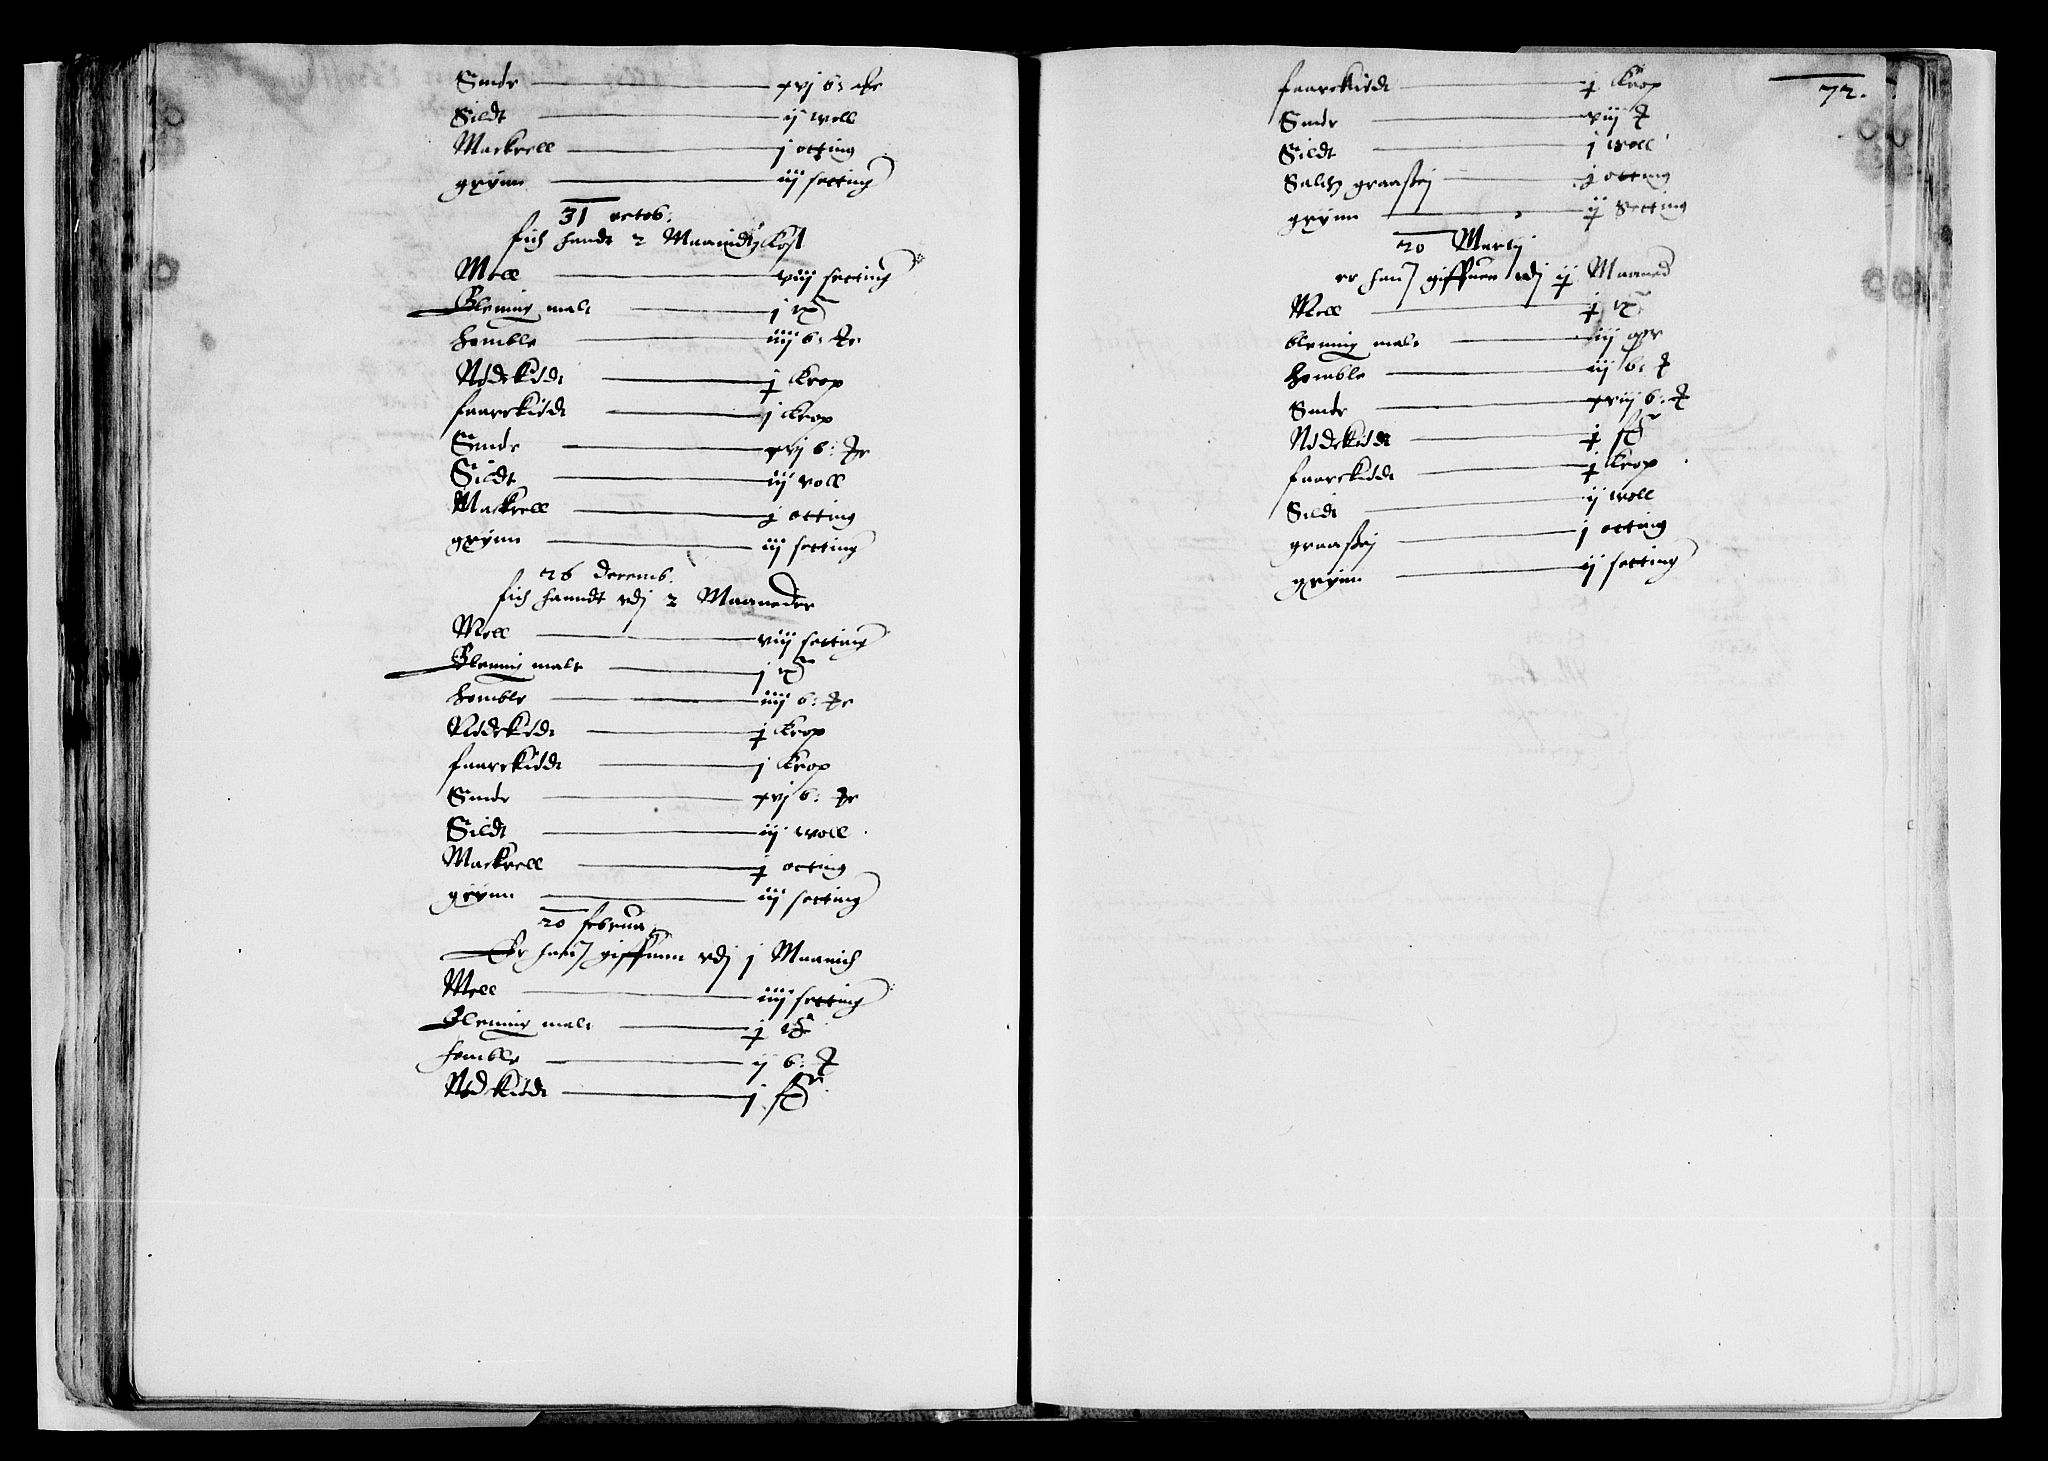 Smør — xvj b: ℔r
Sildt — ij woll
Mackrell — j otting
grynn — iij setting
31 octob:
fich handt 2 Maanidtz Kost
Mell — viij setting
Blening malt — j
homble — iiij b: ℔r
Nødekiødt — j Krop
faarekiødt — j Krop
Smør — xvj b: ℔r
Sildt — iij woll
Mackrell — j otting
grynn — iij setting
26 decemb.
fich hanndt vdj 2 Maaneder
Mell — viij setting
Blening malt — j
homble — iiij b: ℔r
Nødekiødt — j Krop
faarekiødt — j Krop
Smør — xvj b: ℔r
Sildt — iij woll
Mackrell — j otting
grynn — iij setting
20 februar
Er hans giffuen vdj j Maanidt
Mell — iiij setting
Blening malt — j
homble — ij b: ℔
Nødkiødt — j
72.
faarekiødt — j Krop
Smør — viij ℔
Sildt — j woll
Saltz graasej — j otting
grynn — ij setting
20 Martij
er hans giffuen vdj ij Maaned
Mell — j
blening malt — iij
homble — iij b: ℔
Smør — xviij b: ℔
Nødekiødt — j
faarekiødt — j Krop
Sildt — ij woll
graasej — j otting
grynn — ij setting